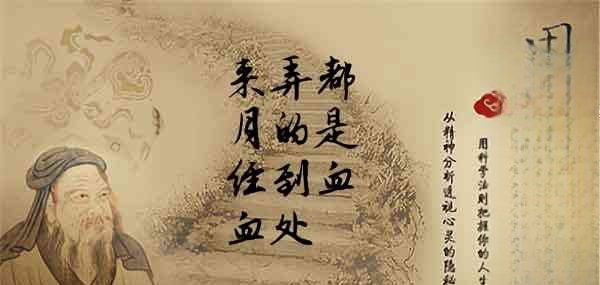 来月经血
弄的到处
都是血
用科学法则把握你的人生
从精神分析透视心灵的隐秘